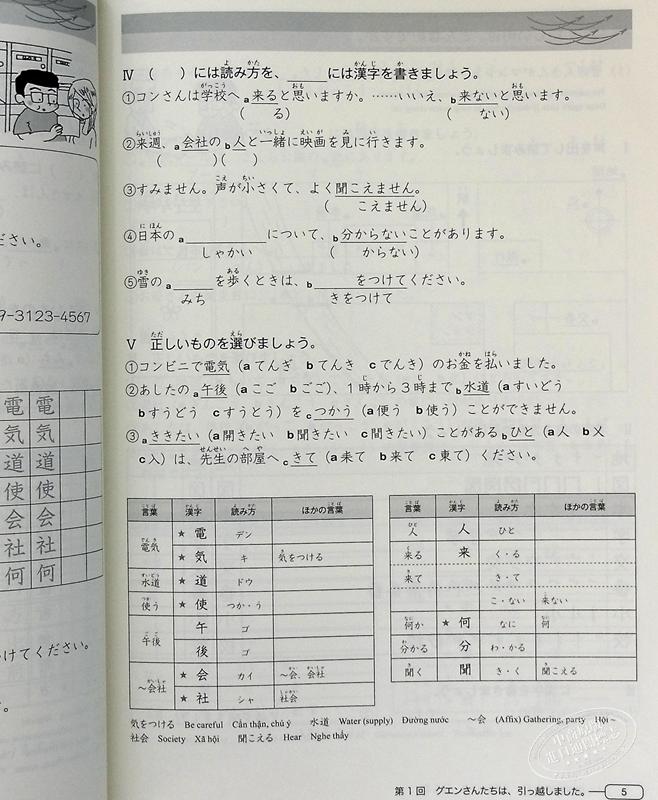 ださい。
9-3123-4567
電 電
気 気
道 道
使 使
会 会
社 社
何 何
けてください。
Ⅳ （　）には読み方を、____には漢字を書きましょう。
①コンさんは学校へ a来ると思いますか。……いいえ、b来ないと思います。
（　　る）　（　　ない）
②来週、a会社の b人と一緒に映画を見に行きます。
（　　）（　　）
③すみません。声が小さくて、よく聞こえません。
（　　こえません）
④日本の a________について、b分からないことがあります。
しゃかい　（　　からない）
⑤雪の a____を歩くときは、b____をつけてください。
みち　きをつけて
Ⅴ 正しいものを選びましょう。
①コンビニで電気（aてんぎ　bてんき　cでんき）のお金を払いました。
②あしたの a午後（aここご　bごご）、1時から3時まで b水道（aすいどう
bすうどう　cすうとう）を cつかう（a便う　b使う）ことができません。
③ aききたい（a開きたい　b聞きたい　c間きたい）ことがある bひと（a人　b乂
c入）は、先生の部屋へ cきて（a来て　b来て　c東て）ください。
言葉 漢字 読み方 ほかの言葉
電気 ★ 電 デン
★ 気 キ 気をつける
水道 ★ 道 ドウ
使う ★ 使 つか・う
午後 午 ゴ
後 ゴ
～会社 ★ 会 カイ ～会、会社
★ 社 シャ 社会
言葉 漢字 読み方 ほかの言葉
人 人 ひと
来る 来 く・る
来て き・て
こ・ない 来ない
何か ★ 何 なに 何
分かる 分 わ・かる
聞く 聞 き・く 聞こえる
気をつける　Be careful　Cẩn thận, chú ý　水道　Water (supply)　Đường nước　～会　(Affix) Gathering, party　Hội ~
社会　Society　Xã hội　聞こえる　Hear　Nghe thấy
第1回　グエンさんたちは、引っ越しました。 5